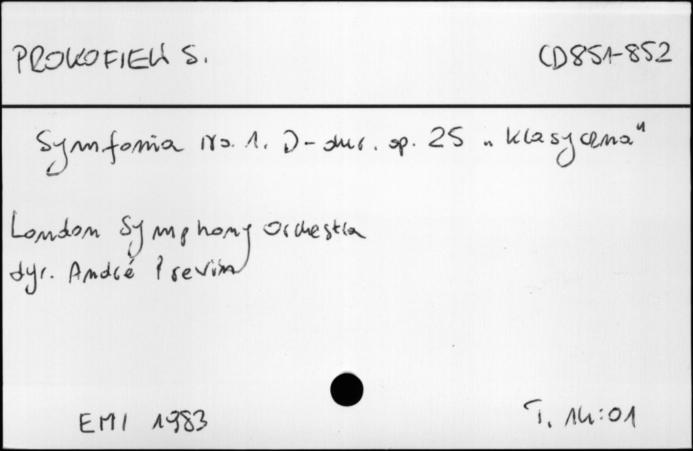 PROKOFIEW S. CD851-852
Symfonia nro. 1. D-dur. op. 25 „Klasyczna"
London Symphony Orchestra
dyr. André Previn
EMI 1983 T. 14:01